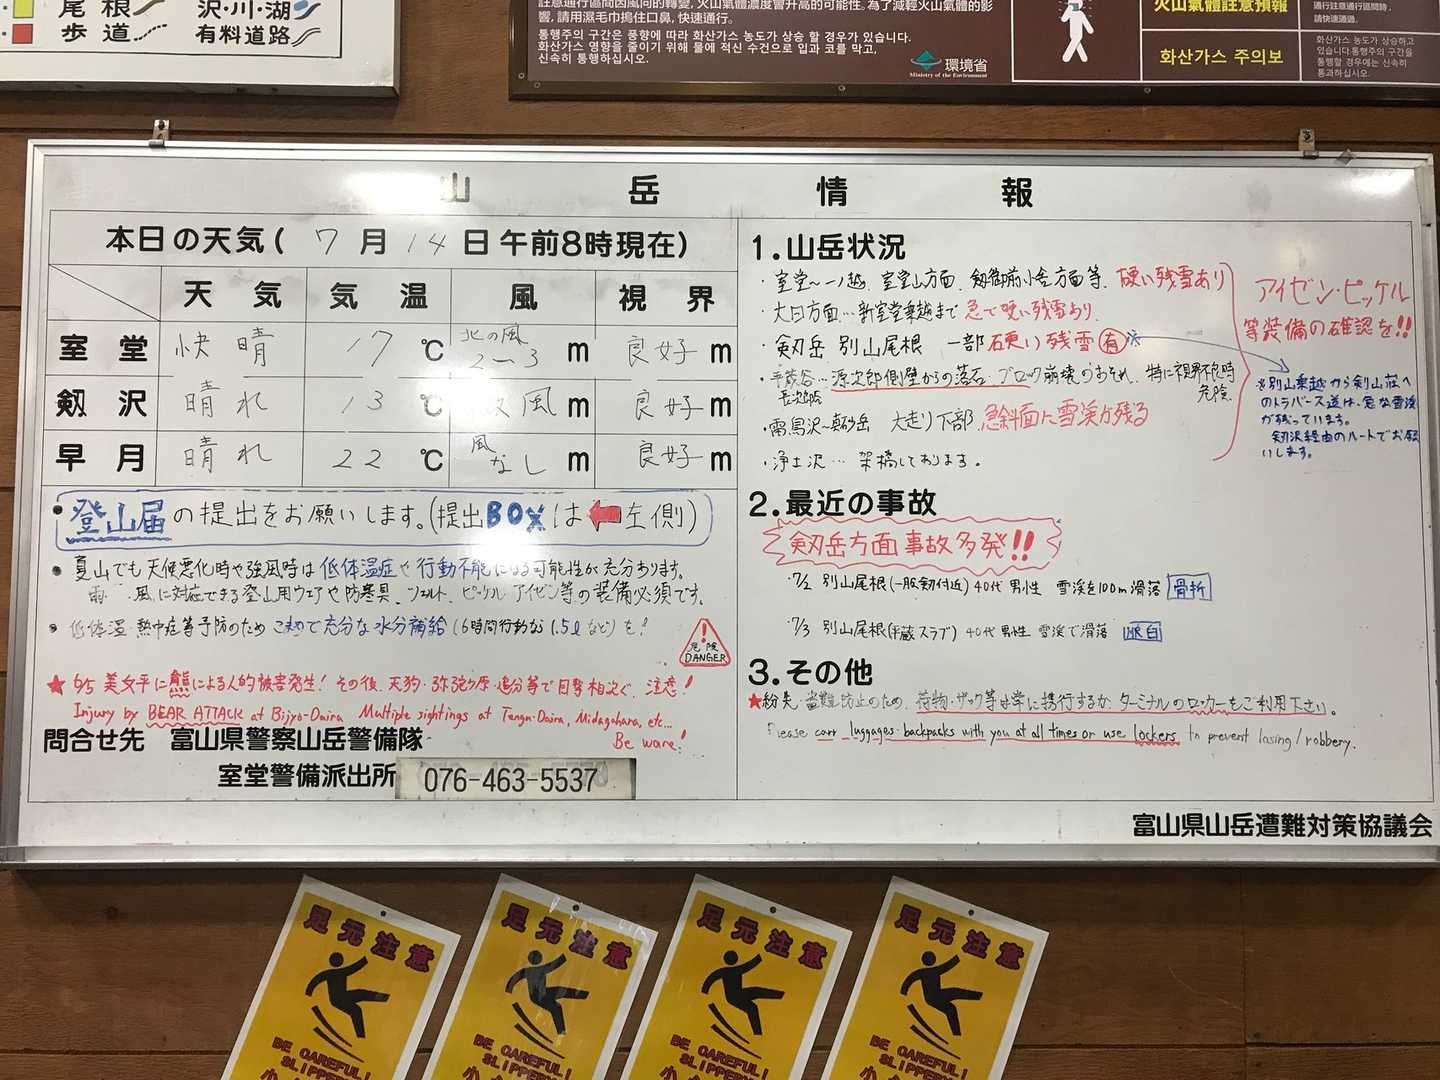 尾根
歩道
沢・川・湖
有料道路
註意通行區間因風向的轉變, 火山氣體濃度會升高的可能性。為了減輕火山氣體的影
響, 請用濕毛巾摀住口鼻, 快速通行。
통행주의 구간은 풍향에 따라 화산가스 농도가 상승 할 경우가 있습니다.
화산가스 영향을 줄이기 위해 물에 적신 수건으로 입과 코를 막고,
신속히 통행하십시오.
環境省
Ministry of the Environment
火山氣體註意預報
請快速通過.
화산가스 주의보
화산가스 농도가 상승하고
있습니다.통행주의 구간을
통행할 경우에는 신속히
통과하십시오.
山岳情報
本日の天気( 7月14日午前8時現在)
天気 気温 風 視界
室堂 快晴 17℃ 北の風 2~3m 良好m
剱沢 晴れ 13℃ 風m 良好m
早月 晴れ 22℃ 風なしm 良好m
・登山届の提出をお願いします。(提出BOXは←左側)
・夏山でも天候悪化時や強風時は低体温症や行動不能になる可能性が充分あります。
雨、風に対応できる登山用ウェアや防寒具、ツェルト、ピッケル、アイゼン等の装備必須です。
・低体温・熱中症等予防のためこまめで充分な水分補給(6時間行動なら1.5ℓなど)を!
危険
DANGER
★6/5 美女平に熊による人的被害発生! その後、天狗・弥陀ヶ原・追分等で目撃相次ぐ、注意!
Injury by BEAR ATTACK at Bijyo-Daira Multiple sightings at Tengu-Daira, Midagahara, etc...
Be ware!
問合せ先 富山県警察山岳警備隊
室堂警備派出所 076-463-5537
1.山岳状況
・室堂~一ノ越、室堂山方面、剱御前小舎方面等、硬い残雪あり
・大日方面…新室堂乗越まで急で硬い残雪あり.
・剱岳 別山尾根 一部硬い残雪有※
・平蔵谷…源次郎側壁からの落石、ブロック崩壊のおそれ、特に視界不良時
長次郎谷 危険
・雷鳥沢~真砂岳 大走り下部 急斜面に雪渓が残る
・浄土沢…架橋しております。
アイゼン・ピッケル
等装備の確認を!!
※別山乗越から剣山荘へ
のトラバース道は、急な雪渓
が残っています。
剱沢経由のルートでお願
いします。
2.最近の事故
剱岳方面事故多発!!
7/2 別山尾根(一服剱付近) 40代男性 雪渓を100m滑落 骨折
7/3 別山尾根(平蔵スラブ) 40代男性 雪渓で滑落
3.その他
★紛失、盗難防止のため、荷物・ザック等は常に携行するか、ターミナルのロッカーをご利用下さい。
Please carr luggages・backpacks with you at all times or use lockers to prevent losing/robbery.
富山県山岳遭難対策協議会
足元注意
BE CAREFUL!
SLIPPERY
足元注意
BE CAREFUL!
SLIPPERY
足元注意
BE CAREFUL!
SLIPPERY
足元注意
BE CAREFUL!
SLIPPERY